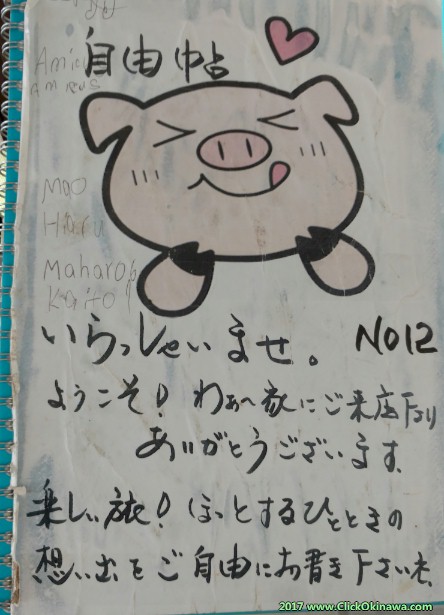 自由帖
Amic
AMICUS
Moo
Haru
Maharo
Kaito
いらっしゃいませ。 NO12
ようこそ! わぁ〜家にご来店下さり
ありがとうございます。
楽しい旅! ほっとするひとときの
想い出をご自由にお書き下さいませ
2017 www.ClickOkinawa.com